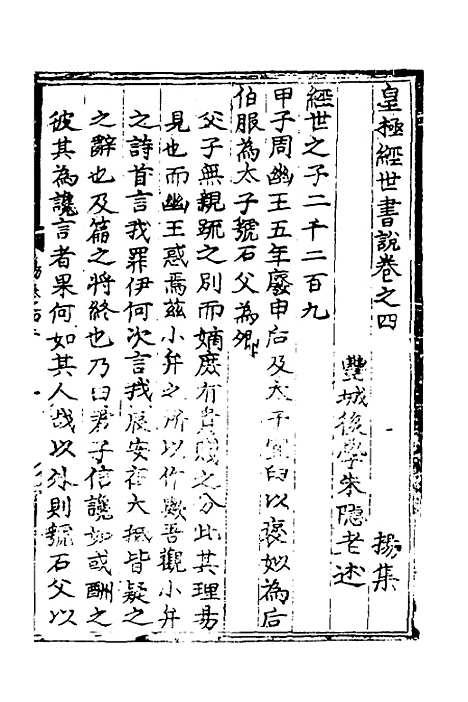 皇極經世書說卷之四
揚集
豐城後學朱隱老述
經世之子二千二百九
甲子周幽王五年廢申后及太子宜臼以褒姒為后
伯服為太子號石父為卿
父子無親疏之別而嫡庶有貴賤之分此其理易
見也而幽王惑焉茲小弁之所以作歟吾觀小弁
之詩首言我罪伊何次言我辰安在大抵皆疑之
之辭也及篇之將終也乃曰君子信讒如或酬之
彼其為讒言者果何如其人哉以外則虢石父以